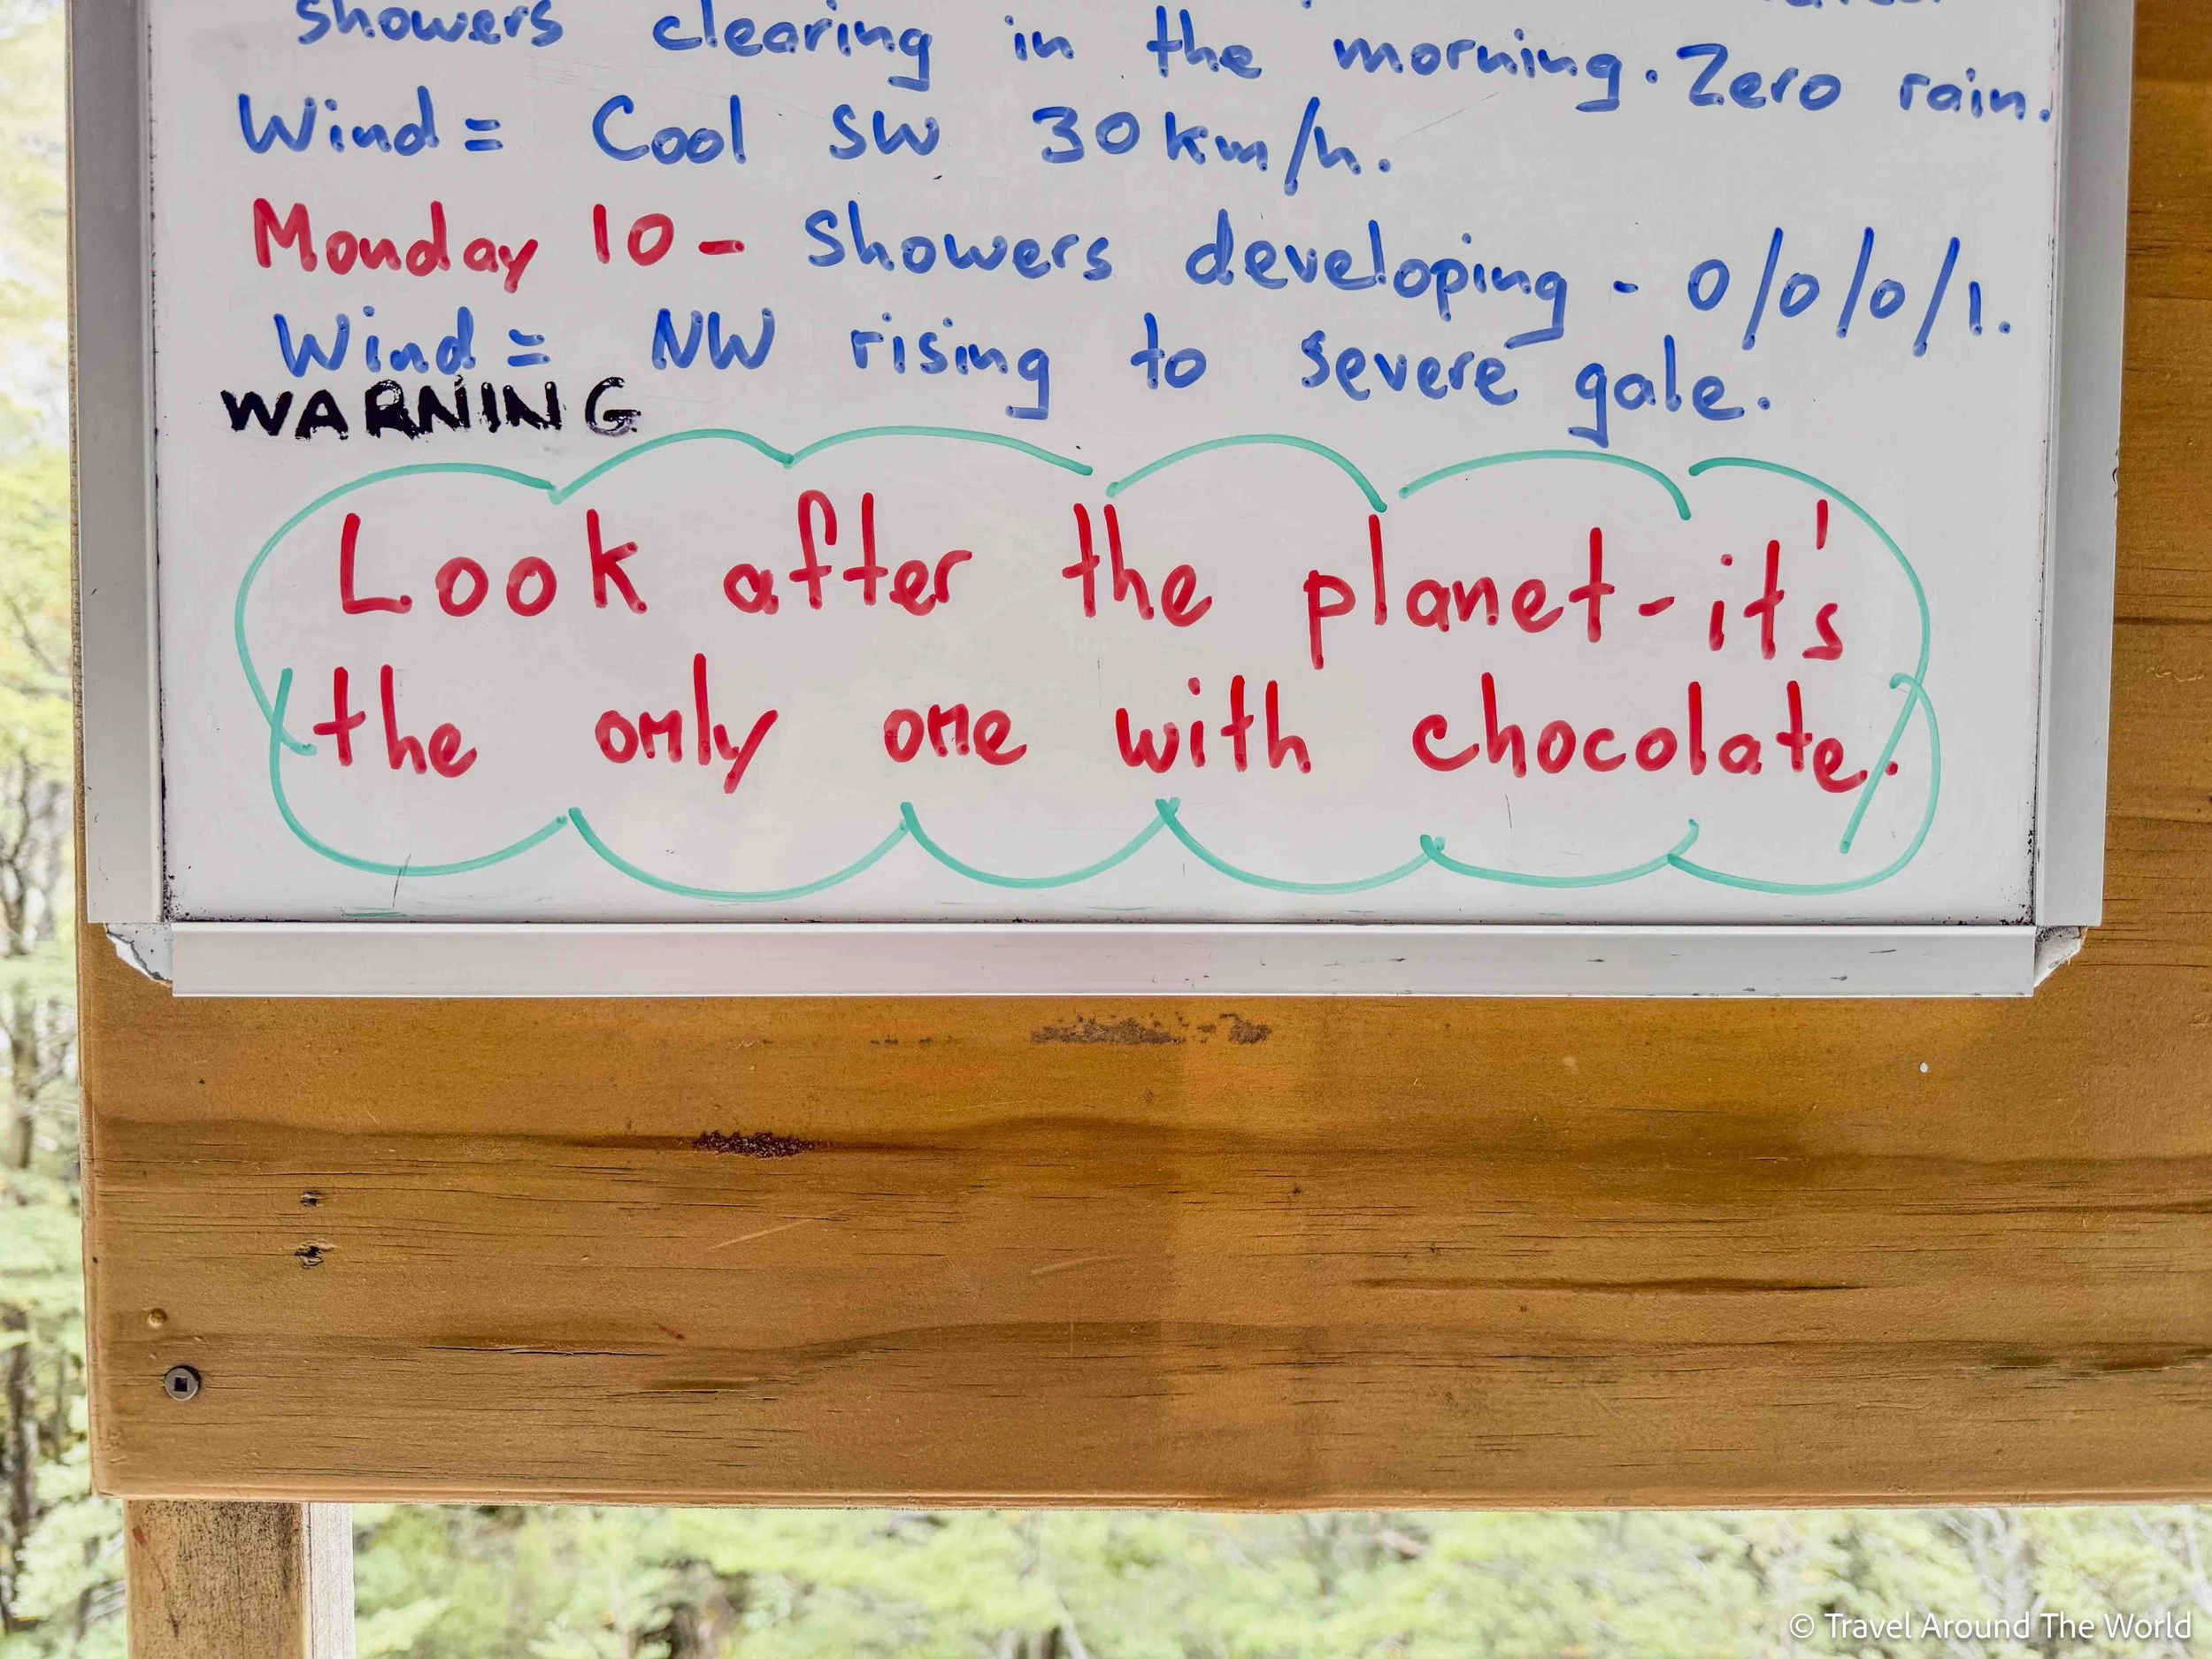 Showers clearing in the morning. Zero rain.
Wind = Cool SW 30 km/h.
Monday 10 - Showers developing - 0/0/0/1.
Wind = NW rising to severe gale.
WARNING
Look after the planet - it's
the only one with chocolate.
© Travel Around The World